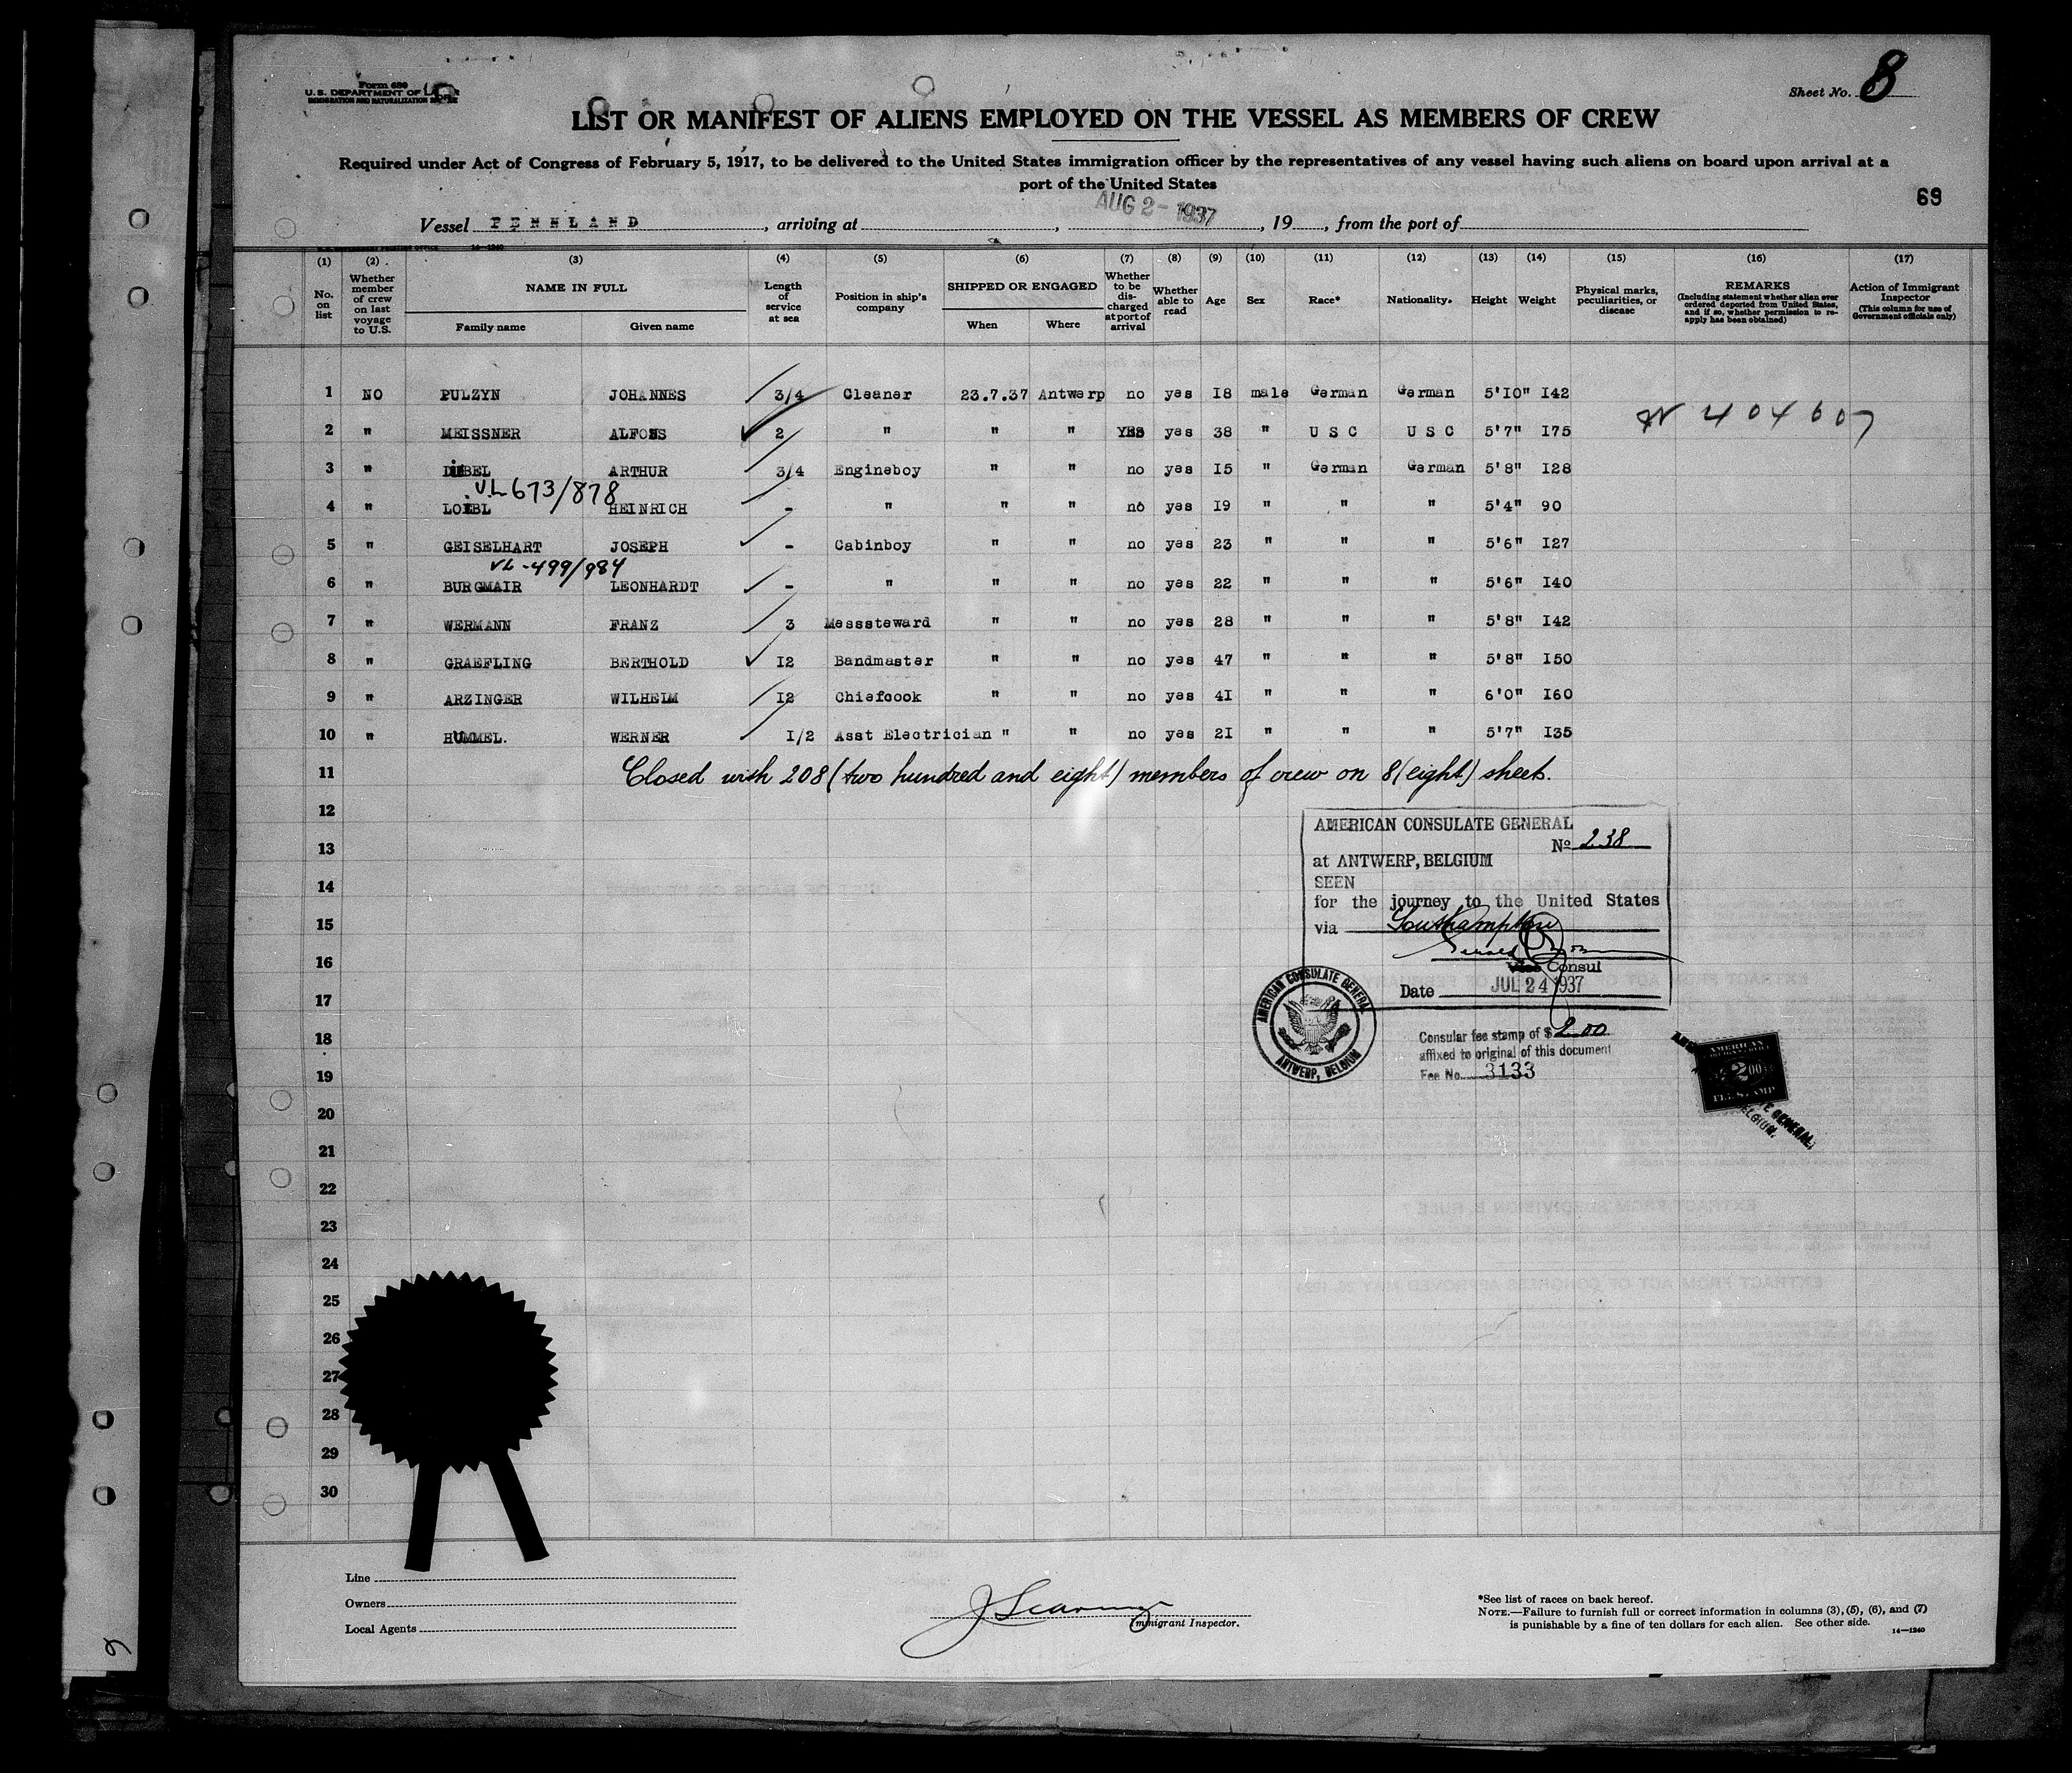 Form 680
U.S. DEPARTMENT OF
IMMIGRATION AND NATURALIZATION
Sheet No. 8
LIST OR MANIFEST OF ALIENS EMPLOYED ON THE VESSEL AS MEMBERS OF CREW
Required under Act of Congress of February 5, 1917, to be delivered to the United States immigration officer by the representatives of any vessel having such aliens on board upon arrival at a
port of the United States
69
AUG 2- 1937
Vessel PENNLAND, arriving at , , 19 , from the port of
(1) (2) (3) (4) (5) (6) (7) (8) (9) (10) (11) (12) (13) (14) (15) (16) (17)
No. on list
Whether member of crew on last voyage to U.S.
NAME IN FULL
Family name Given name
Length of service at sea
Position in ship's company
SHIPPED OR ENGAGED
When Where
Whether to be discharged at port of arrival
Whether able to read
Age
Sex
Race*
Nationality.
Height
Weight
Physical marks, peculiarities, or disease
REMARKS
(Including statement whether alien ever ordered deported from United States, and if so, whether permission to re-apply has been obtained)
Action of Immigrant Inspector
(This column for use of Government officials only)
1 NO PULZYN JOHANNES 3/4 Cleaner 23.7.37 Antwerp no yes I8 male German German 5'IO" I42
2 " MEISSNER ALFONS 2 " " " YES yes 38 " U S C U S C 5'7" I75
3 " BEL ARTHUR 3/4 Engineboy " " no yes I5 " German German 5'8" I28
VL 673/878
4 " LOIBL HEINRICH - " " " no yes I9 " " " 5'4" 90
5 " GEISELHART JOSEPH - Cabinboy " " no yes 23 " " " 5'6" I27
VL-499/984
6 " BURGMAIR LEONHARDT - " " " no yes 22 " " " 5'6" I40
7 " WERMANN FRANZ 3 Messsteward " " no yes 28 " " " 5'8" I42
8 " GRAEFLING BERTHOLD I2 Bandmaster " " no yes 47 " " " 5'8" I50
9 " ARZINGER WILHELM I2 Chiefcook " " no yes 4I " " " 6'0" I60
10 " HUMMEL. WERNER I/2 Asst Electrician " " no yes 2I " " " 5'7" I35
11 Closed with 208 (two hundred and eight) members of crew on 8 (eight) sheets.
12
13
14
15
16
17
18
19
20
21
22
23
24
25
26
27
28
29
30
AMERICAN CONSULATE GENERAL
No 238
at ANTWERP, BELGIUM
SEEN
for the journey to the United States
via Southampton
Vice Consul
Date JUL 24 1937
AMERICAN CONSULATE GENERAL
ANTWERP, BELGIUM
Consular fee stamp of $ 2.00
affixed to original of this document
Fee No. 3133
AMERICAN
2 00
FEE STAMP
GENERAL,
BELGIUM.
Line
Owners
Local Agents
Immigrant Inspector.
*See list of races on back hereof.
NOTE.—Failure to furnish full or correct information in columns (3), (5), (6), and (7)
is punishable by a fine of ten dollars for each alien. See other side.
14—1240